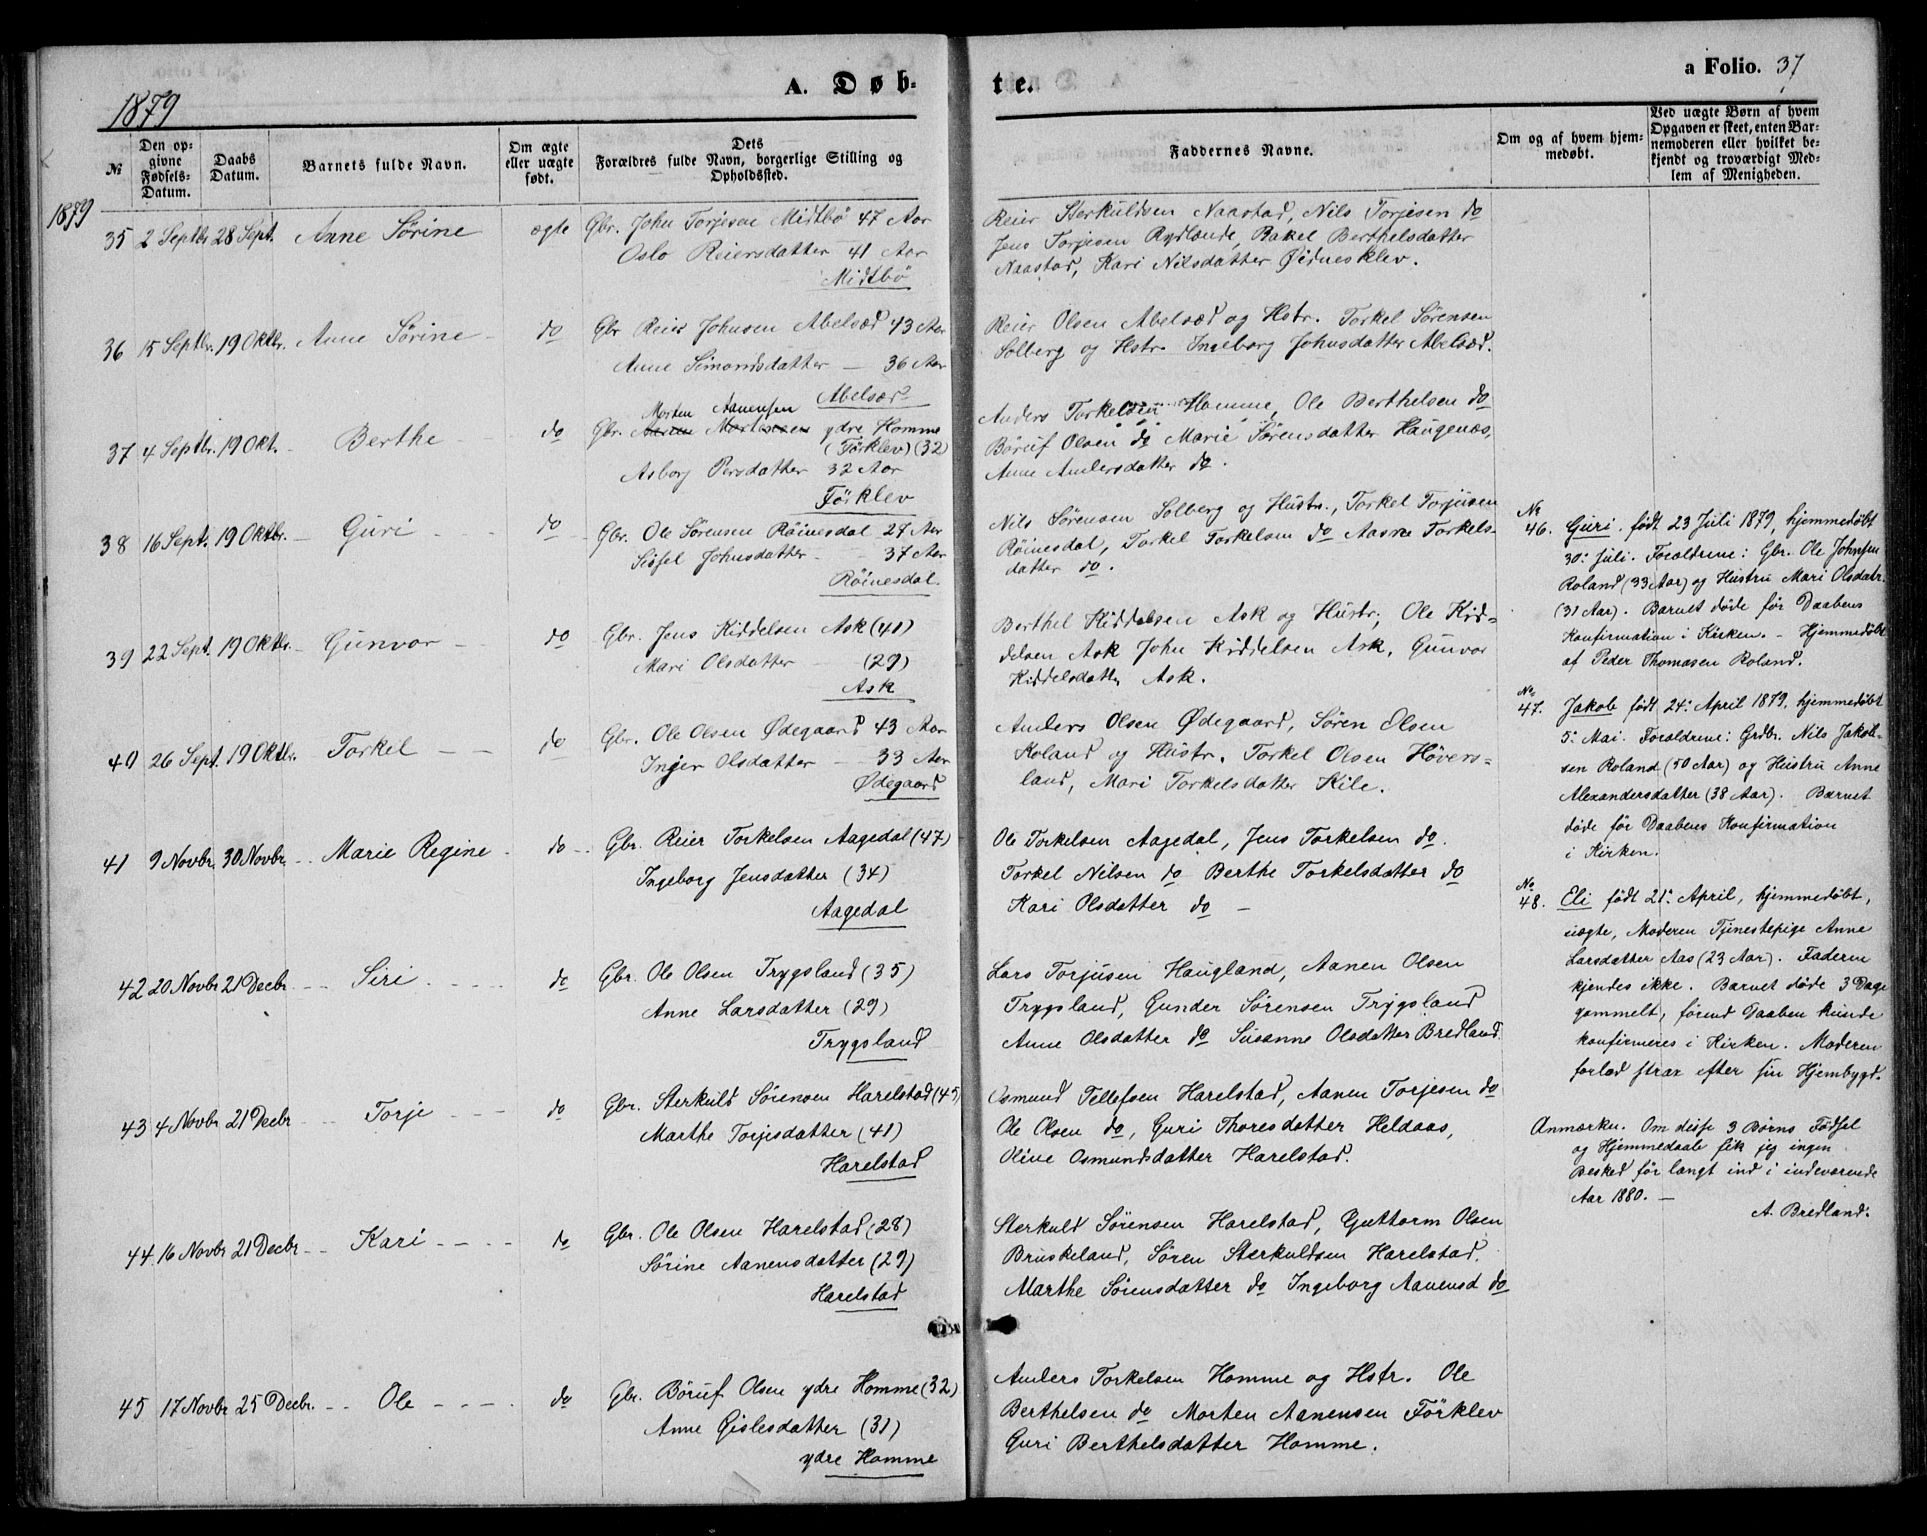 a Folio. 37
A. Døb-
te.
1879
№
Den op-
givne
Fødsels-
Datum.
Daabs
Datum.
Barnets fulde Navn.
Om ægte
eller uægte
født.
Dets
Forældres fulde Navn, borgerlige Stilling og
Opholdssted.
Faddernes Navne.
Om og af hvem hjem-
medøbt.
Ved uægte Børn af hvem
Opgaven er skeet, enten Bar-
nemoderen eller hvilket be-
kjendt og troværdigt Med-
lem af Menigheden.
1879
35 2 Septbr 28 Sept. Anne Sørine ægte Gbr. John Torjesen Midtbö 47 Aar
Oslo Reiersdatter - 41 Aar
Midtbö
Reier Sterkuldsen Naastad, Nils Torjesen do
Jens Torjesen Rydlande, Rakel Berthelsdatter
Naastad, Kari Nilsdatter Øidnesklev.
36 15 Septbr. 19 Oktbr. Anne Sørine - do Gbr Reier Johnsen Abelsæd 43 Aar
Anne Simonsdatter — 36 Aar
Abelsæd
Reier Olsen Abelsæd og Hstr. Torkel Sørensen
Solberg og Hstr. Ingeborg Johnsdatter Abelsæd.
37 4 Septbr. 19 Okt. - Berthe - - do
Morten Aanensen
Gbr. Aanen Mortensen ydre Homme
(Förklev) (32)
Asborg Persdatter 32 Aar
Förklev
Anders Torkelsen Homme, Ole Berthelsen do
Böruf Olsen do Marie Sørensdatter Haugenæs,
Anne Andersdatter do.
38 16 Sept. 19 Oktbr. - Guri - - do Gbr. Ole Sørensen Röinesdal 27 Aar
Sissel Johnsdatter - - 37 Aar
Röinesdal.
Nils Sørensen Solberg og Hustr., Torkel Torjusen
Röinesdal, Torkel Torkelsen do Aasne Torkels-
datter do.
39 22 Sept. 19 Oktbr. - Gunvor - do Gbr. Jens Kiddelsen Ask (40)
Mari Olsdatter - (29)
Ask
Berthel Kiddelsen Ask og Hustr, Ole Kid-
delsen Ask John Kiddelsen Ask, Gunvor
Kiddelsdattr Ask.
40 26 Sept. 19 Oktbr. Torkel - - do Gbr. Ole Olsen Ødegaard 43 Aar
Inger Olsdatter - 33 Aar
Ødegaard
Anders Olsen Ødegaard, Søren Olsen
Roland og Hustr. Torkel Olsen Hövers-
land, Mari Torkelsdatter Kile.
41 9 Novbr. 30 Novbr. - Marie Regine - do - Gbr. Reier Torkelsen Aagedal (47)
Ingeborg Jensdatter (34)
Aagedal
Ole Torkelsen Aagedal, Jens Torkelsen do.
Torkel Nilsen do Berthe Torkelsdatter do
Kari Olsdatter do -
42 20 Novbr 21 Decbr. - - Siri - - - - do Gbr. Ole Olsen Trygsland (35)
Anne Larsdatter (29)
Trygsland
Lars Torjusen Haugland, Aanen Olsen
Trygsland, Gunder Sørensen Trygsland
Anne Olsdatter do Susanne Olsdatter Bredland.
43 4 Novbr 21 Decbr - - Torje - - - do Gbr. Sterkuld Sörensen Harelstad (45)
Marthe Torjesdatter (41)
Harelstad
Osmund Tellefsen Harelstad, Aanen Torjesen do
Ole Olsen do, Guri Thoresdatter Heldaas,
Oline Osmundsdatter Harelstad.
44 16 Novbr 21 Decbr - - Kari - - - - do Gbr. Ole Olsen Harelstad (28)
Sörine Aanensdatter (29)
Harelstad
Sterkuld Sørensen Harelstad, Guttorm Olsen
Bruskeland, Søren Sterkuldsen Harelstad.
Marthe Sørensdatter do Ingeborg Aanensd do
45 17 Novbr 25 Decbr. - - Ole - - - - do Gbr. Böruf Olsen ydre Homme (32)
Anne Gislesdatter (31)
ydre Homme
Anders Torkelsen Homme og Hstr. Ole
Berthelsen do Morten Aanensen Förklev
Guri Berthelsdatter Homme.
No
46. Guri. født 23 Juli 1879, hjemmedøbt
30: Juli. Forældrene: Gbr. Ole Johnsen
Roland (33 Aar) og Hustru Mari Olsdatr.
(31 Aar). Barnet døde før Daabens
Konfirmation i Kirken. - Hjemmedøbt
af Peder Thomasen Roland.
No
47. Jakob født 24: April 1879, hjemmedøbt
5: Mai. Forældrene: Grdbr. Nils Jakob-
sen Roland (50 Aar) og Hustru Anne
Alexandersdatter (38 Aar). Barnet
døde før Daabens Konfirmation
i Kirken.
No
48. Eli født 21: April, hjemmedøbt,
uægte, Moderen Tjenestepige Anne
Larsdatter Aas (23 Aar). Faderen
kjendes ikke. Barnet døde 3 Dage
gammelt, førend Daaben kunde
konfirmeres i Kirken. Moderen
forlod strax efter sin Hjembygd.
Anmærkn. Om disse 3 Børns Fødsel
og Hjemmedaab fik jeg ingen
Besked før langt ind i indeværende
Aar 1880. -
A. Bredland.